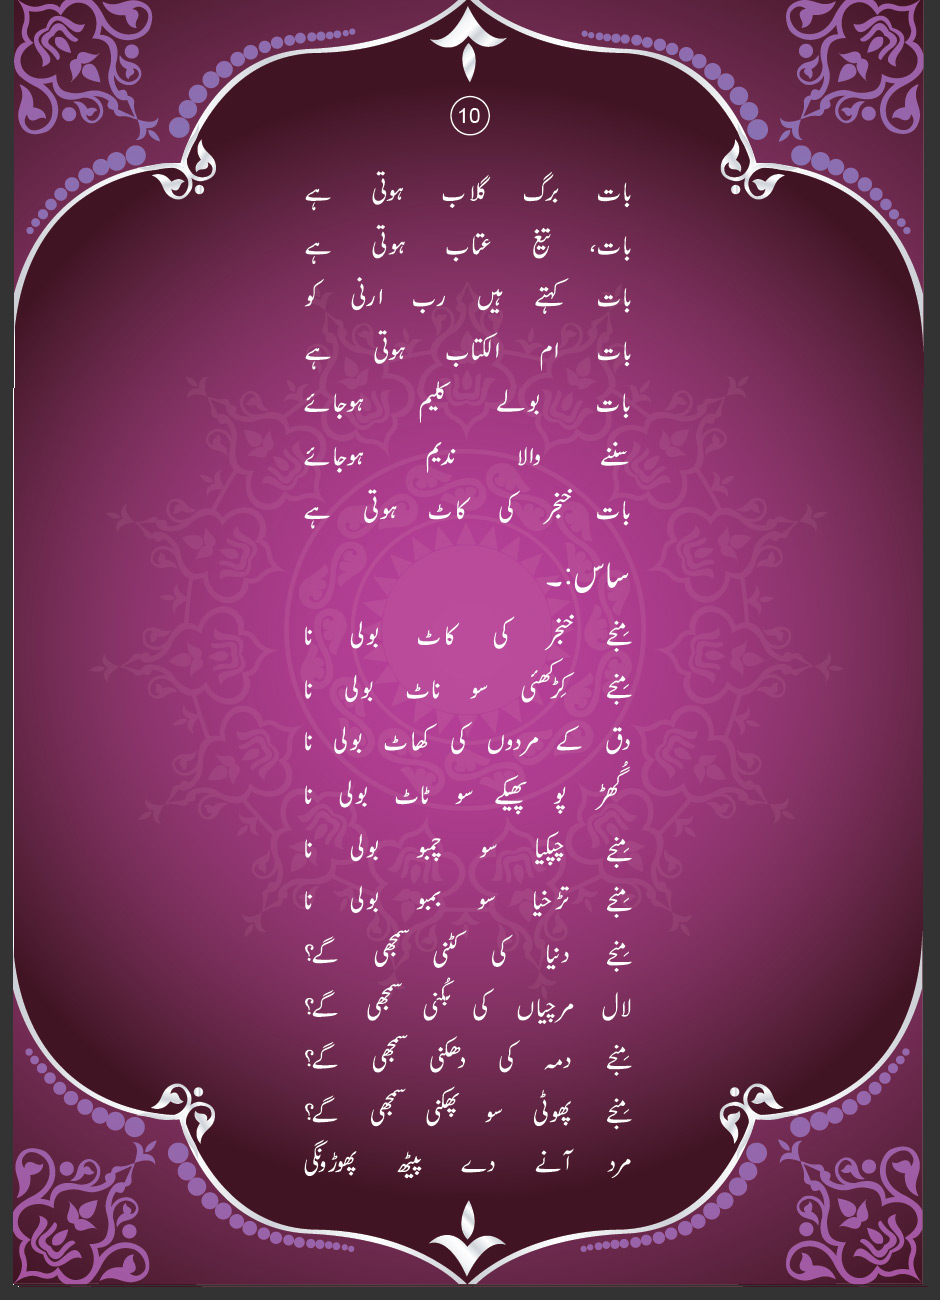 10
بات برگ گلاب ہوتی ہے
بات، تیغ عتاب ہوتی ہے
بات کہتے ہیں رب ارنی کو
بات ام الکتاب ہوتی ہے
بات بولے کلیم ہوجائے
سننے والا ندیم ہوجائے
بات خنجر کی کاٹ ہوتی ہے
ساس:۔
مِنجے خنجر کی کاٹ بولی نا
مِنجے کِڑکھئی سو ناٹ بولی نا
دق کے مردوں کی کھاٹ بولی نا
گُھڑ پو پھیکے سو ٹاٹ بولی نا
مِنجے چپکیا سو چمبو بولی نا
مِنجے تڑخیا سو بمبو بولی نا
مِنجے دنیا کی کٹنی سمجھی گے؟
لال مرچیاں کی بُکنی سمجھی گے؟
مِنجے دمہ کی دھکنی سمجھی گے؟
مِنجے پھوٹی سو پھکنی سمجھی گے؟
مرد آنے دے پیٹھ پھوڑونگی